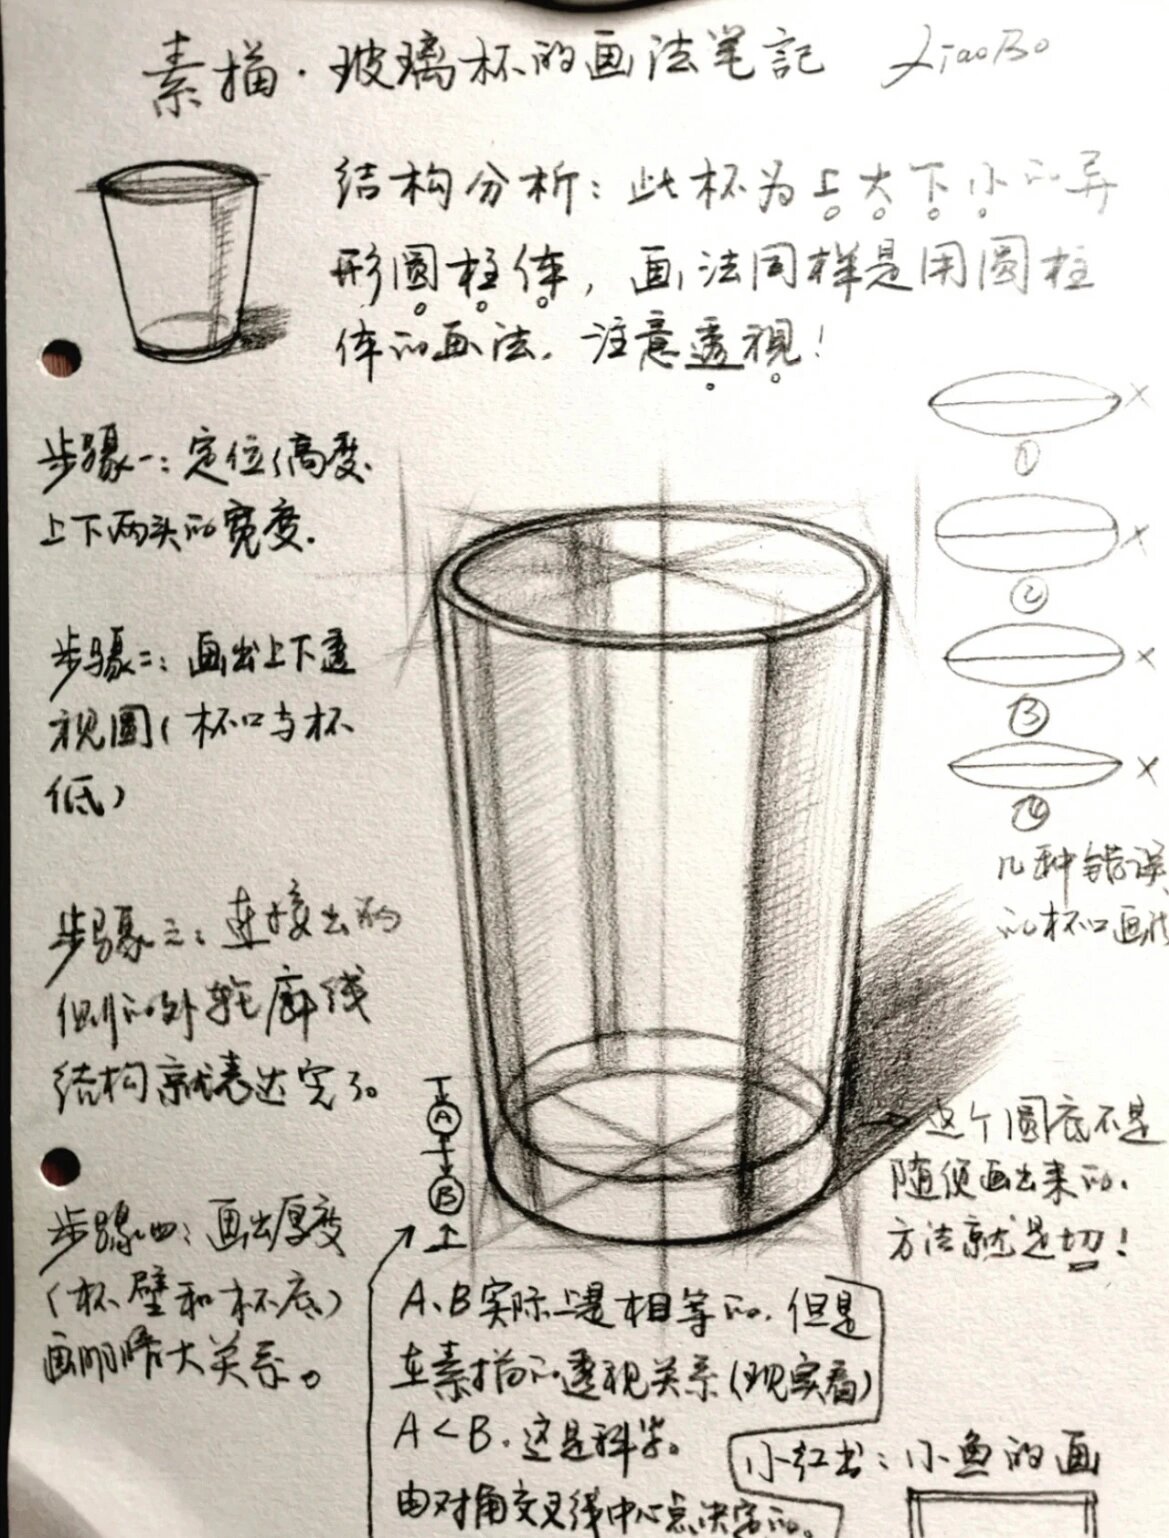 素描·玻璃杯的画法笔記 XiaoBo
结构分析：此杯为上大下小的异
形圆柱体，画法同样是用圆柱
体的画法。注意透视！
步骤一：定位（高度、
上下两头的宽度.
步骤二：画出上下透
视圆（杯口与杯
低）
步骤三：连接出的
侧的外轮廓线
结构就表达完了。
步骤四：画出厚度
（杯壁和杯底）
画明暗大关系。
× ①
× ②
× ③
× ④
几种错误
的杯口画法
A
B
→这个圆底不是
随便画出来的.
方法就是切！
A、B实际上是相等的.但是
在素描的透视关系（现实看）
A<B.这是科学。
由对角交叉线中心点决定的。
小红书：小鱼的画